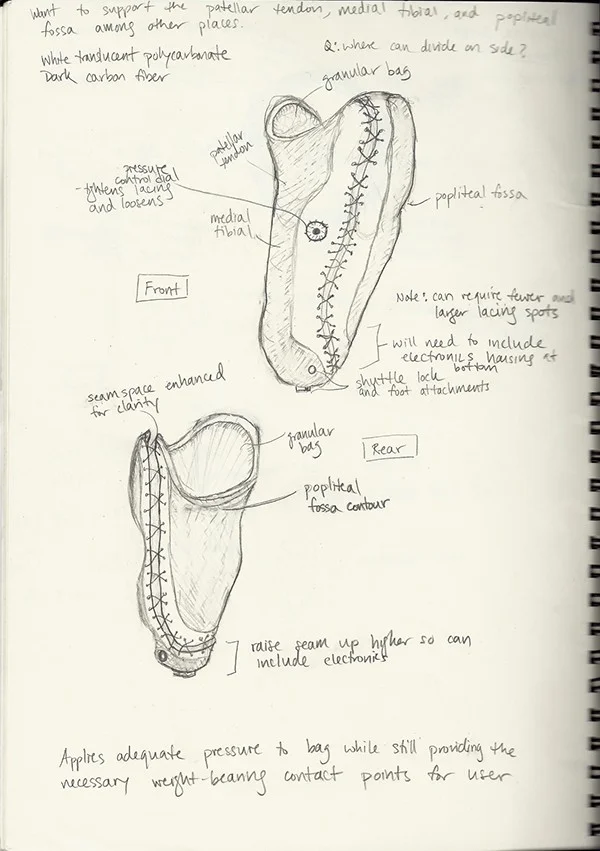 Want to support the patellar tendon, medial tibial, and popliteal
fossa among other places.
White translucent polycarbonate
Dark carbon fiber
Q: where can divide on side?
granular bag
patellar
tendon
pressure
control dial
- tightens lacing
and loosens
popliteal fossa
medial
tibial
Front
Note: can require fewer and
larger lacing spots
will need to include
electronics housing at
bottom
shuttle lock
and foot attachments
seam space enhanced
for clarity
granular
bag
Rear
popliteal
fossa contour
raise seam up higher so can
include electronics
Applies adequate pressure to bag while still providing the
necessary weight-bearing contact points for user